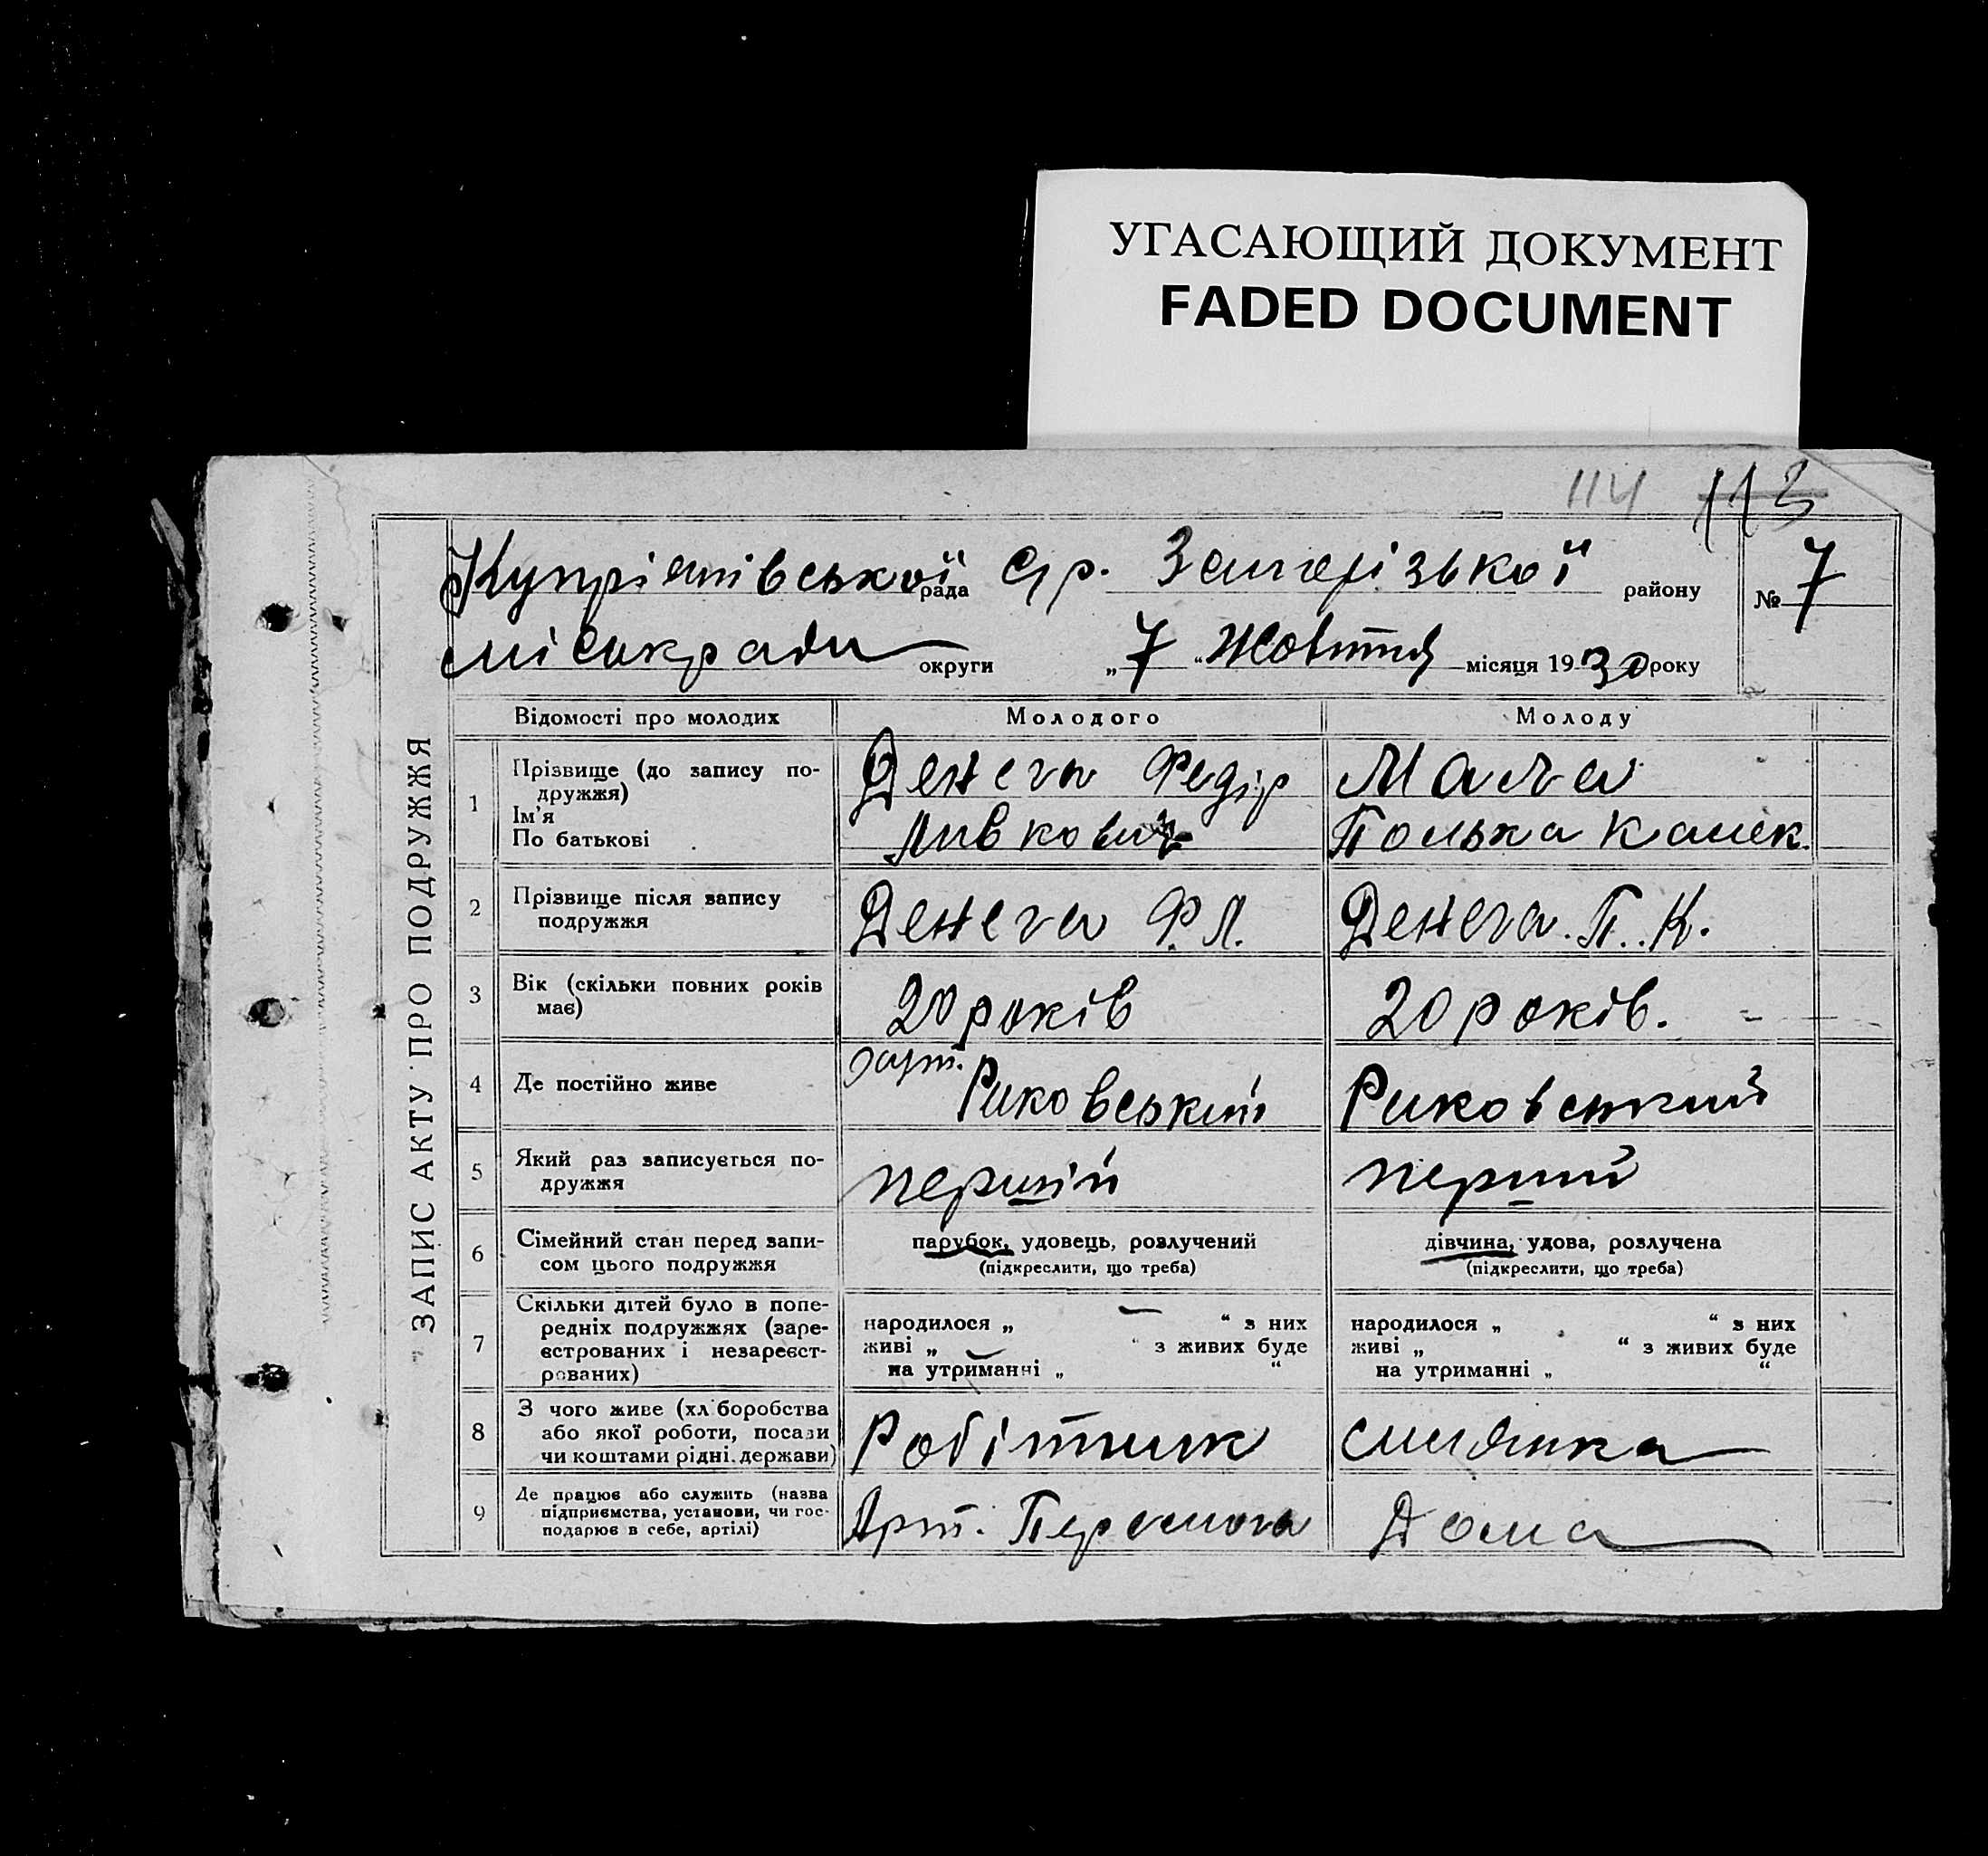 УГАСАЮЩИЙ ДОКУМЕНТ
FADED DOCUMENT
114 113
Купріянівської рада С/р. Запорізької району № 7
міськради округи „7“ Жовтня місяця 1930 року
ЗАПИС АКТУ ПРО ПОДРУЖЖЯ
Відомості про молодих Молодого Молоду
1 Прізвище (до запису по-
дружжя)
Ім'я
По батькові
Денега Федір
Мала
Полька
2 Прізвище після запису
подружжя
Денега Ф. Л.
Денега. П. К.
3 Вік (скільки повних років
має)
20 років
20 років.
4 Де постійно живе
Риковський
Риковський
5 Який раз записується по-
дружжя
першій
перший
6 Сімейний стан перед запи-
сом цього подружжя
парубок, удовець, розлучений
(підкреслити, що треба)
дівчина, удова, розлучена
(підкреслити, що треба)
7 Скільки дітей було в попе-
редніх подружжях (заре-
єстрованих і незареєст-
рованих)
народилося „ — “ з них
живі „ — “ з живих буде
на утриманні „ “
народилося „ “ з них
живі „ “ з живих буде
на утриманні „ “
8 З чого живе (хліборобства
або якої роботи, посади
чи коштами рідні, держави)
Робітник
9 Де працює або служить (назва
підприємства, установи, чи гос-
подарює в себе, артілі)
Арт. Перемога
Дома